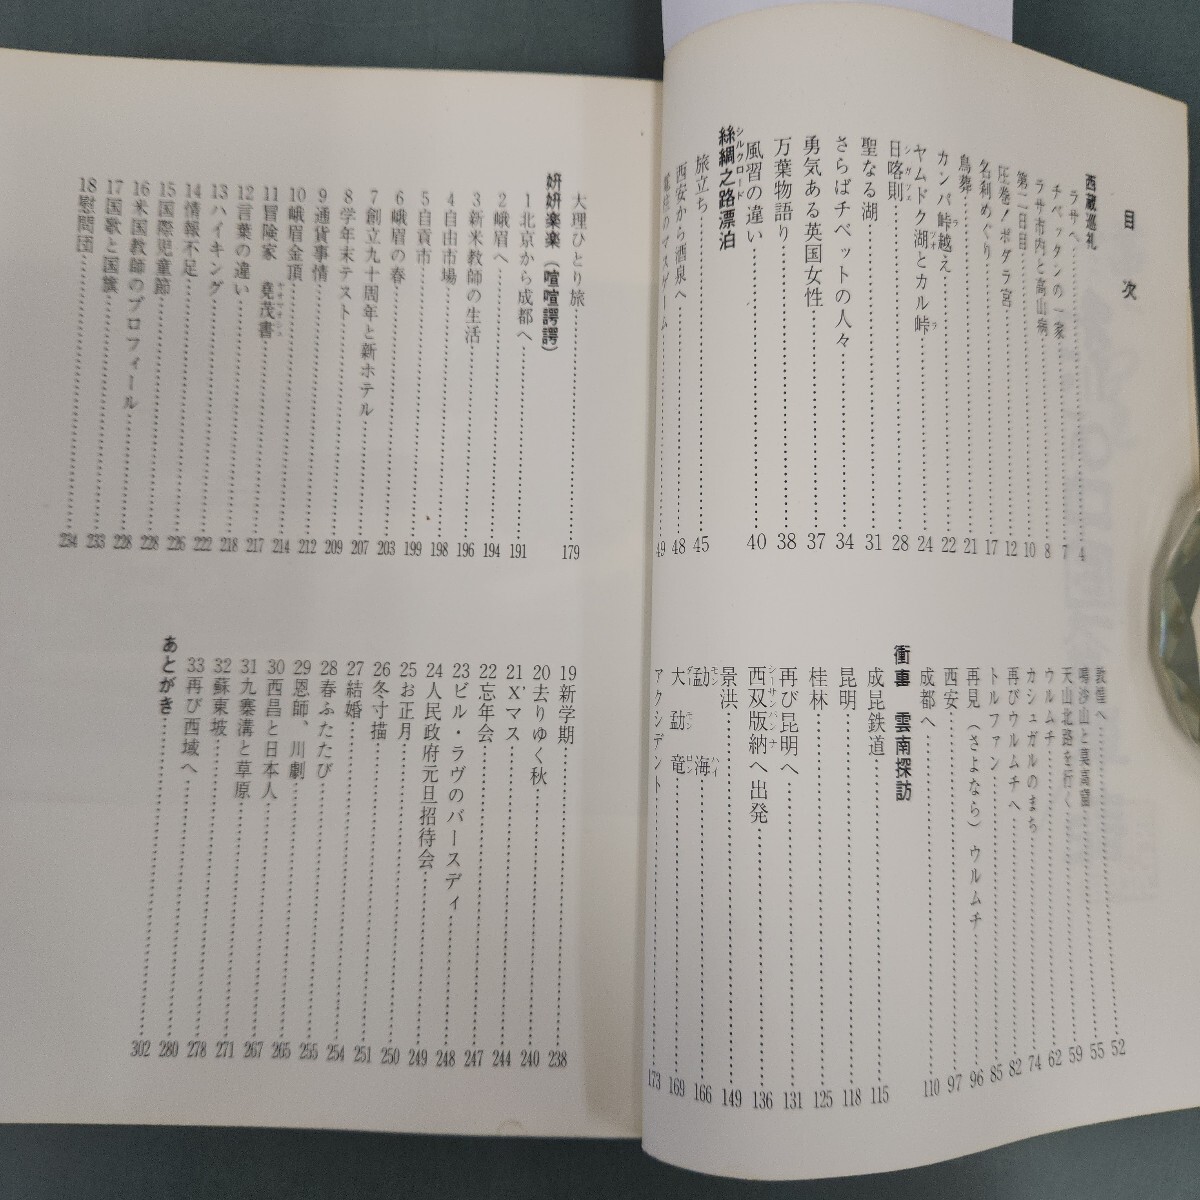 目次
西蔵巡礼
ラサへ……4
チベッタンの一家……7
ラサ市内と高山病……8
第二日目……10
圧巻!ポダラ宮……12
名刹めぐり……17
鳥葬……21
カンパ峠越え……22
ヤムドク湖とカル峠……24
日喀則……28
聖なる湖……31
さらばチベットの人々……34
勇気ある英国女性……37
万葉物語り……38
風習の違い……40
絲綢之路漂泊
シルクロード
旅立ち……45
西安から酒泉へ……48
のマスゲーム……49
敦煌へ……52
鳴沙山と莫高窟……55
天山北路を行く……59
ウルムチ……62
カシュガルのまち……74
再びウルムチへ……82
トルファン……85
再見(さよなら)ウルムチ……96
西安……97
成都へ……110
衝裏 雲南探訪
成昆鉄道……115
昆明……118
桂林……125
再び昆明へ……131
西双版納へ出発……136
シーサンパンナ
景洪……149
勐海……166
大勐竜……169
アクシデント……173
大理ひとり旅……179
妍妍楽楽(喧喧諤諤)
1北京から成都へ……191
2峨眉へ……194
3新米教師の生活……196
4自由市場……198
5自貢市……199
6峨眉の春……203
7創立九十周年と新ホテル……207
8学年末テスト……209
9通貨事情……212
10峨眉金頂……214
11冒険家 堯茂書……217
12言葉の違い……218
13ハイキング……222
14情報不足……226
15国際児童節……228
16米国教師のプロフィール……228
17国歌と国旗……233
18慰問団……234
19新学期……238
20去りゆく秋……240
21X'マス……244
22忘年会……247
23ビル・ラヴのバースディ……248
24人民政府元旦招待会……249
25お正月……250
26冬寸描……251
27結婚……254
28春ふたたび……255
29恩師、川劇……265
30西昌と日本人……267
31九寨溝と草原……271
32蘇東坡……278
33再び西域へ……280
あとがき……302